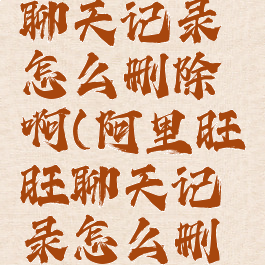 聊天记录
怎么删除
啊(阿里旺
旺聊天记
录怎么删